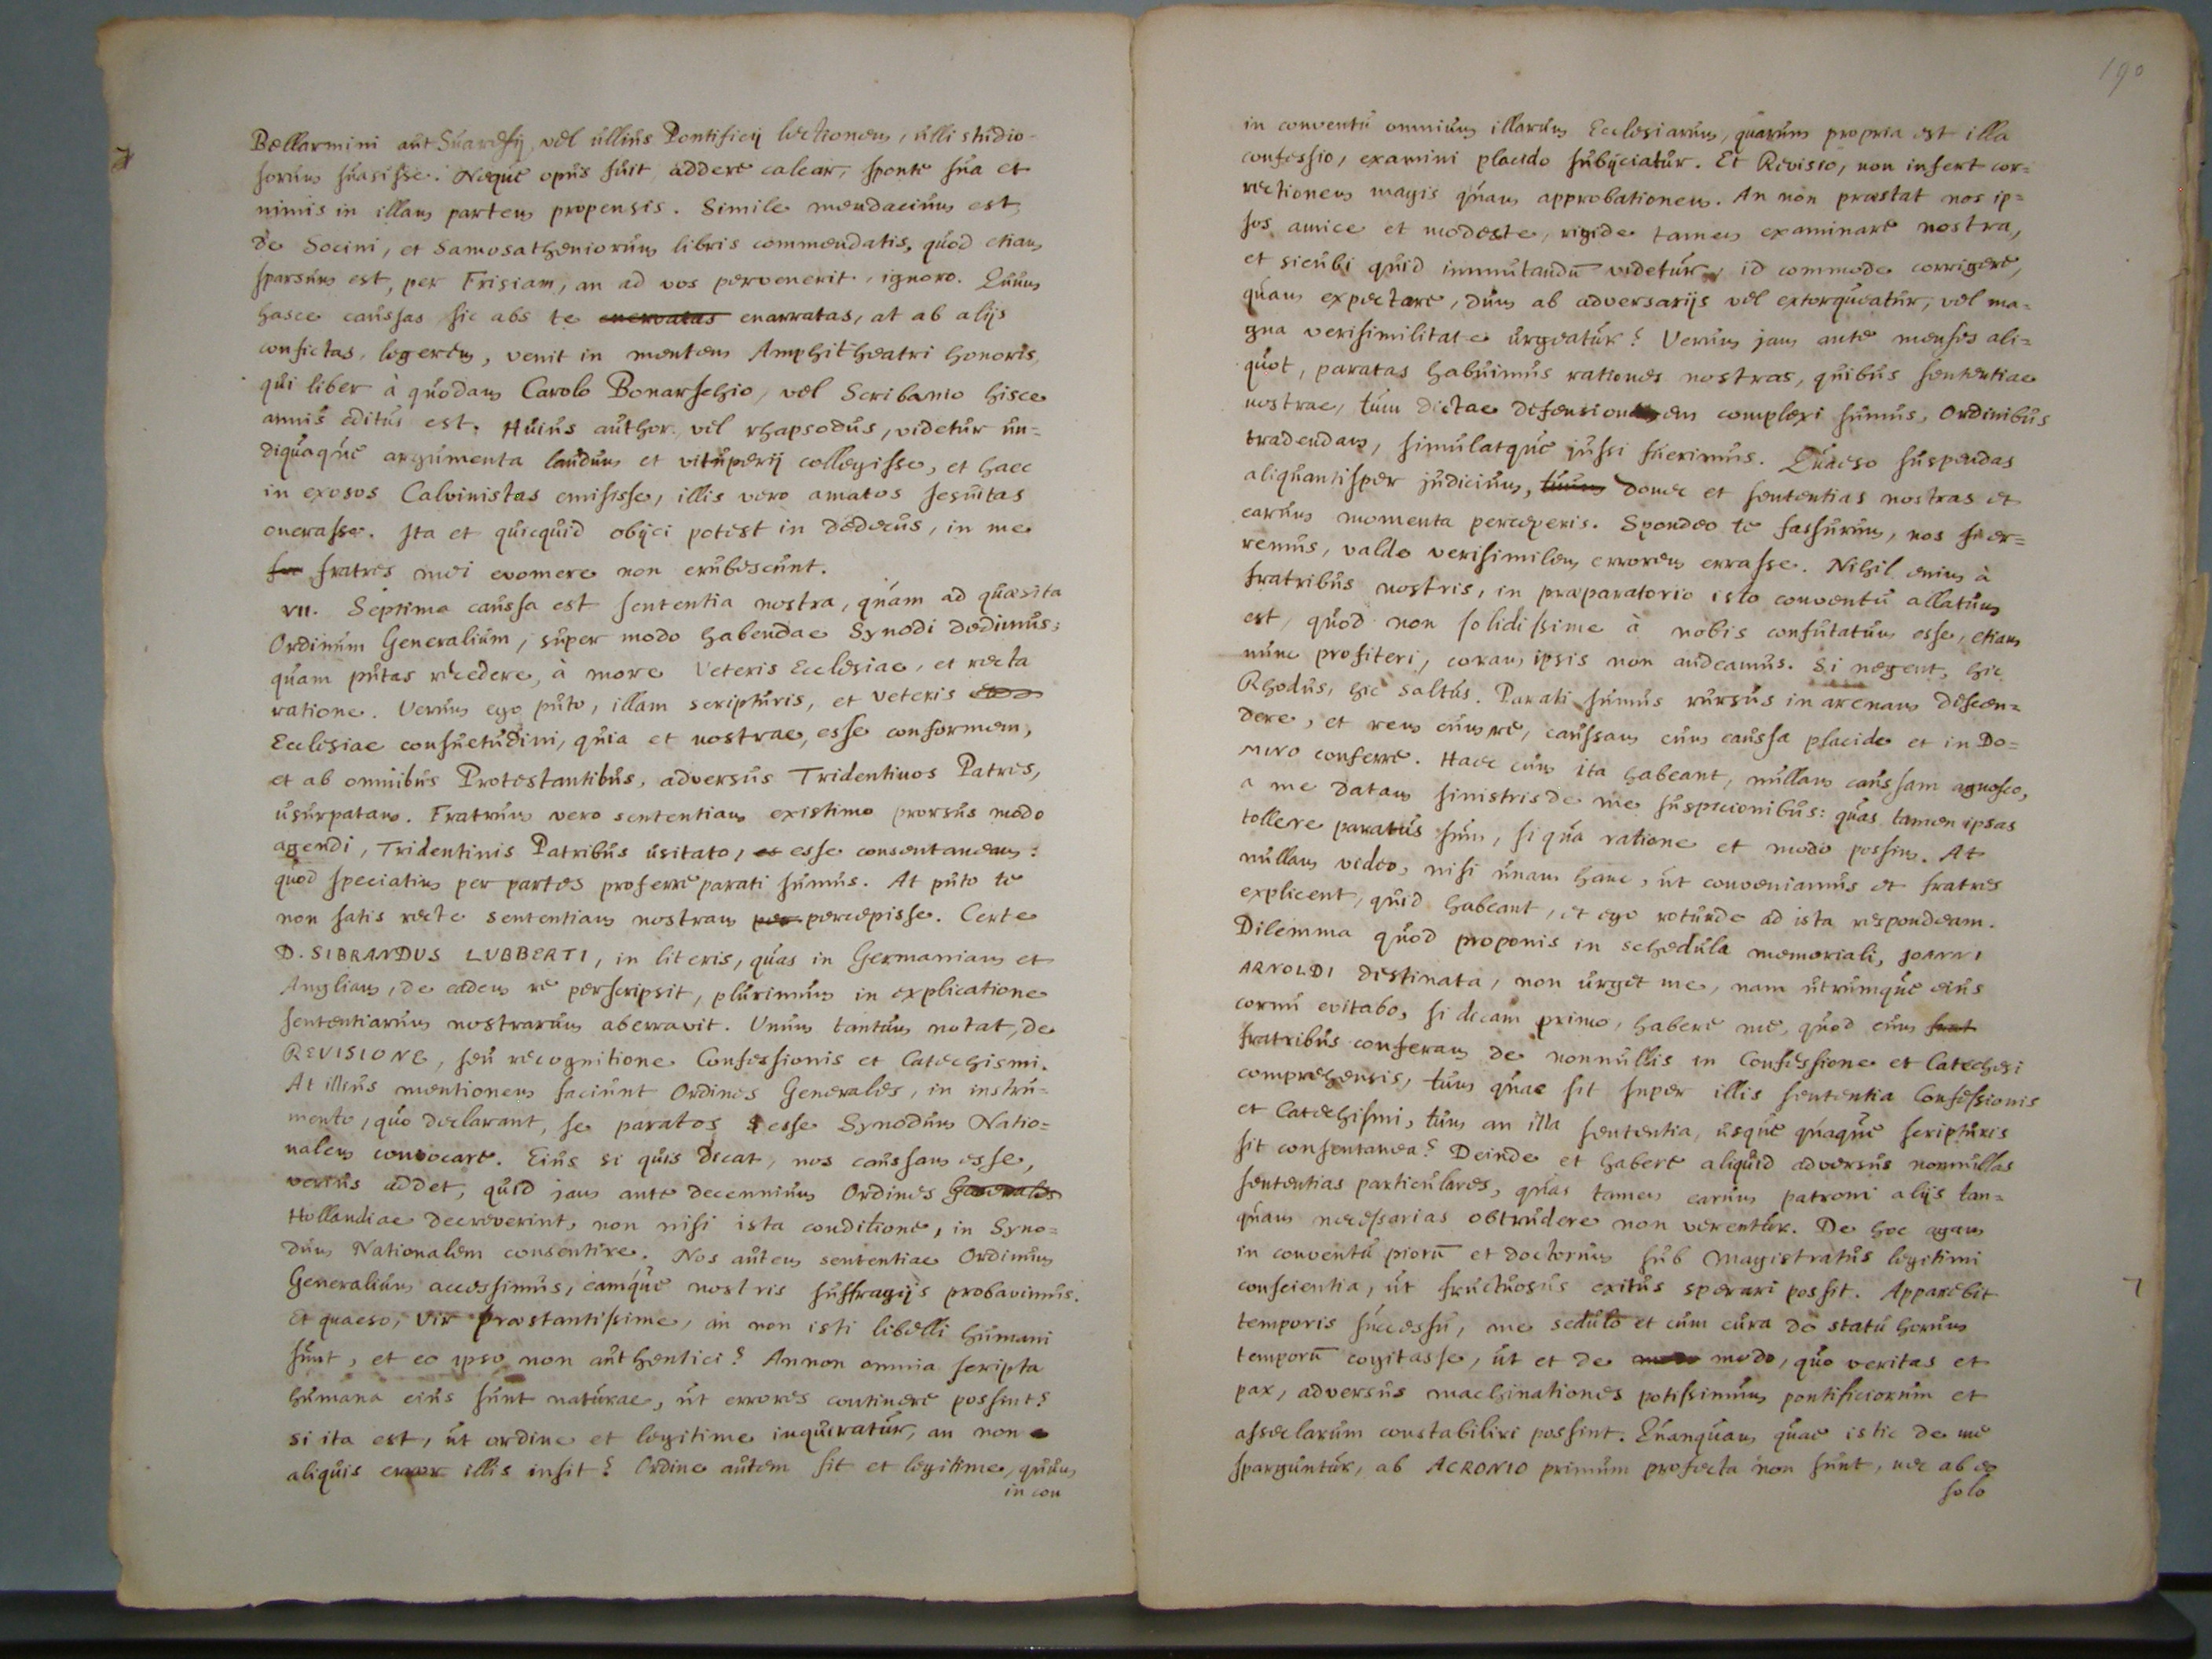 Bellarmini aut Suaresij, vel ullius Pontificij lectionem, ulli studio-
sorum suasisse. Neque opus fuit addere calcar, sponte sua et
nimis in illam partem propensis. Simile mendacium est,
de Socini, et Samosatheniorum libris commendatis, quod etiam
sparsum est, per Frisiam, an ad vos pervenerit, ignoro. Quum
hasce caussas sic abs te enervatas enarratas, at ab alijs
confictas, legerem, venit in mentem Amphitheatri honoris,
qui liber à quodam Carolo Bonarschio, vel Scribanio hisce
annis editus est. Huius author, vel rhapsodus, videtur un=
diquaque argumenta laudum et vituperij collegisse, et haec
in exosos Calvinistas emisisse, illis vero amatos Jesuitas
onerasse. Ita et quicquid obijci potest in dedecus, in me
fratres mei evomere non erubescunt.
VII. Septima caussa est sententia nostra, quam ad quaesita
Ordinum Generalium, super modo habendae Synodi dedimus;
quam putas recedere, à more Veteris Ecclesiae, et recta
ratione. Verum ego puto, illam scripturis, et veteris
Ecclesiae consuetudini, quia et nostrae, esse conformem,
et ab omnibus Protestantibus, adversus Tridentinos Patres,
usurpatam. Fratrum vero sententiam existimo prorsus modo
agendi, Tridentinis Patribus usitato, es esse consentaneam:
quod speciatim per partes proferre parati sumus. At puto te
non satis recte sententiam nostram per percepisse. Certe
D. SIBRANDUS LUBBERTI, in literis, quas in Germaniam et
Angliam, de eadem re perscripsit, plurimum in explicatione
sententiarum nostrarum aberravit. Unum tantum notat, de
REVISIONE, seu recognitione Confessionis et Catechismi.
At illius mentionem faciunt Ordines Generales, in instru-
mento, quo declarant, se paratos esse Synodum Natio=
nalem convocare. Eius si quis dicat, nos caussam esse,
verius addet, quid jam ante decennium Ordines Generales
Hollandiae decreverint, non nisi ista conditione, in Syno=
dum Nationalem consentire. Nos autem sententiae Ordinum
Generalium accessimus, eamque nostris suffragijs probavimus.
Et quaeso, Vir Praestantissime, an non isti libelli humani
sunt, et eo ipso non authentici? Annon omnia scripta
humana eius sunt naturae, ut errores continere possint?
Si ita est, ut ordine et legitime inquiratur, an non
aliquis error illis insit? Ordine autem fit et legitime, quum
in con
190
in conventu omnium illarum Ecclesiarum, quarum propria est illa
confessio, examini placido subijciatur. Et Revisio, non infert cor=
rectionem magis quam approbationem. An non praestat nos ip=
sos amice et modeste, rigide tamen examinare nostra,
et sicubi quid immutandū videtur, id commode corrigere,
quam expectare, dum ab adversarijs vel extorqueatur, vel ma=
gna verisimilitate urgeatur? Verum jam ante menses ali=
quot, paratas habuimus rationes nostras, quibus sententiae
nostrae, tum dictae defensionem complexi sumus, Ordinibus
tradendam, simulatque jussi fuerimus. Quaeso suspendas
aliquantisper judicium, tuum donec et sententias nostras et
earum momenta perceperis. Spondeo te fassurum, nos si er=
remus, valde verisimilem errorem errasse. Nihil enim à
fratribus nostris, in praeparatorio isto conventu allatum
est, quod non solidissime à nobis confutatum esse, etiam
nunc profiteri, coram ipsis non audeamus. Si negent, hic
Rhodus, hic saltus. Parati sumus rursus in arenam descen=
dere, et rem cum re, caussam cum caussa placide et in Do=
MINO conferre. Haec cum ita habeant, nullam caussam agnosco,
a me datam sinistris de me suspicionibus: quas tamen ipsas
tollere paratus sum, si qua ratione et modo possim. At
nullam video, nisi unam hanc, ut conveniamus et fratres
explicent, quid habeant, et ego rotunde ad ista respondeam.
Dilemma quod proponis in schedula memoriali, JOANNI
ARNOLDI destinata, non urget me, nam utrumque eius
cornu evitabo, si dicam primo, habere me, quod cum frat
fratribus conferam de nonnullis in Confessione et Catechesi
comprehensis, tum quae sit super illis sententia Confessionis
et Catechismi, tum an illa sententia, usque quaque scripturis
sit consentanea? Deinde et habere aliquid adversus nonnullas
sententias particulares, quas tamen earum patroni alijs tan=
quam necessarias obtrudere non verentur. De hoc agam
in conventu piorū et doctorum sub Magistratus legitimi
conscientia, ut fructuosus exitus sperari possit. Apparebit
temporis successu, me sedulo et cum cura de statu horum
temporū cogitasse, ut et de modo modo, quo veritas et
pax, adversus machinationes potissimum pontificiorum et
asseclarum constabiliri possint. Quanquam quae istic de me
sparguntur, ab ACRONIO primum profecta non sunt, nec ab eo
solo